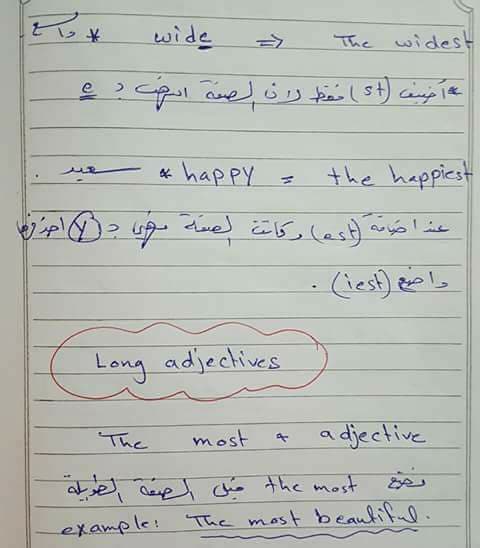 واسع * wide ⇒ The widest
* أضيف (st) فقط لان الصفة انتهت بـ e
سعيد * happy = the happiest.
عند اضافة (est) وكانت الصفة تنتهي بـ (y) احذفها
واضع (iest).
Long adjectives
The most + adjective
نضع the most قبل الصفة الطويلة
example: The most beautiful.